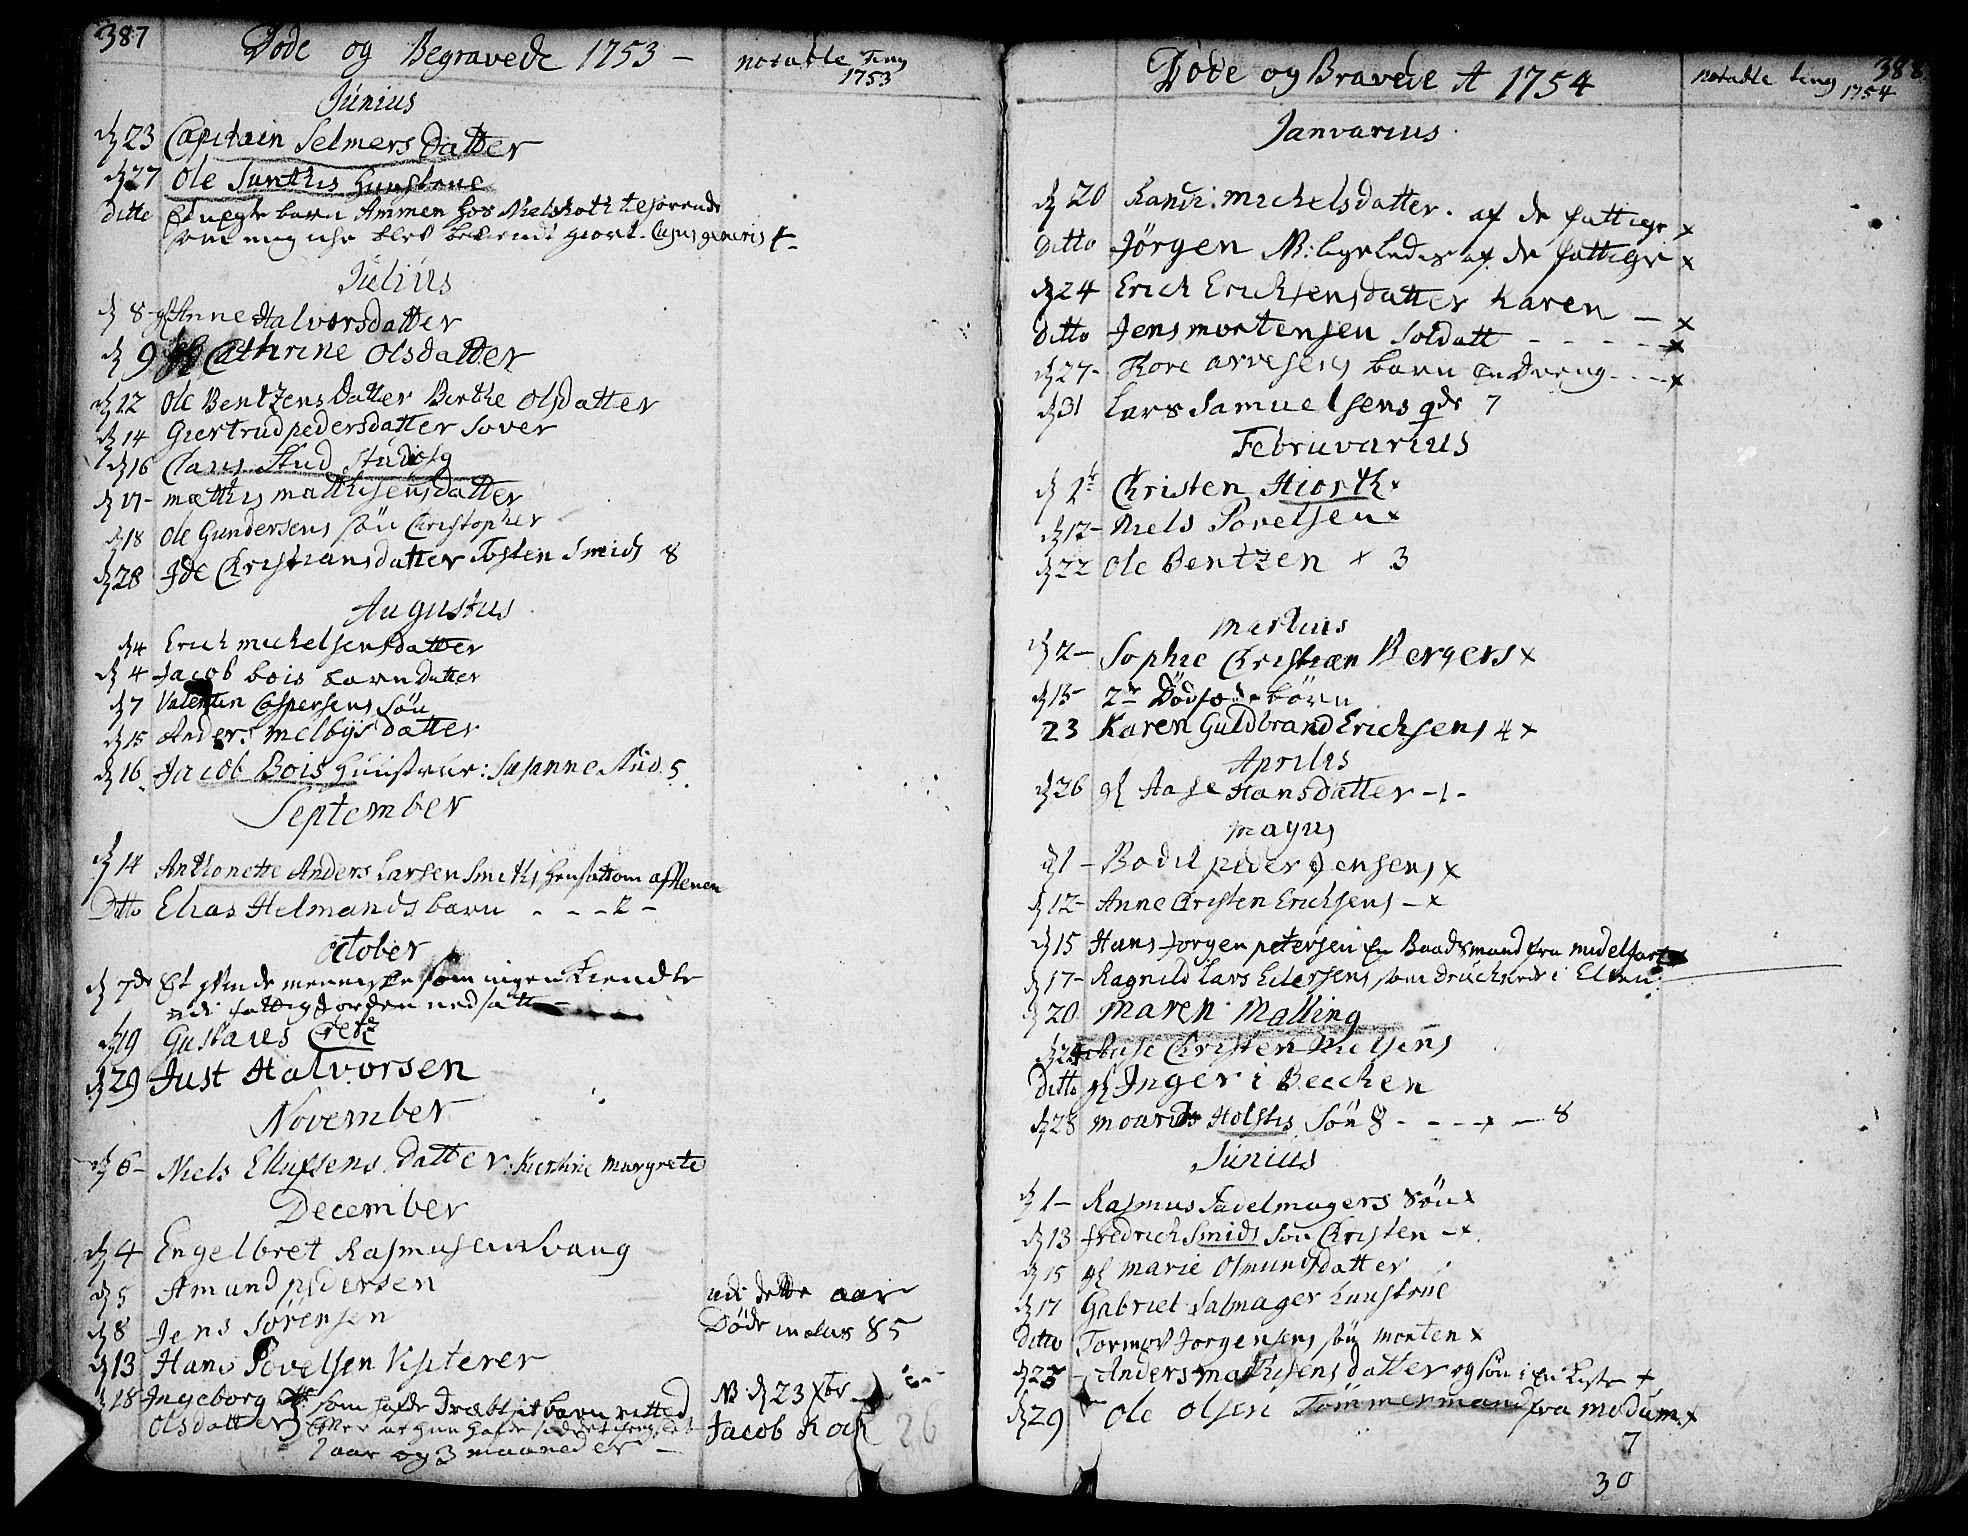 387
Döde og Begravede 1753 -
notable Ting
1753
Junius
d 23 Capitain Selmers Datter
d 27 Ole Smiths Hustrue
ditte Et uegte barn Ammen hos Niels
som mig icke blev bekiendt giort.
Julius
d 8 gl Anne Halvorsdatter
d 9 gl Cathrine Olsdatter
d 12 Ole Bentzens Datter Berthe Olsdatter
d 14 Giertrud pedersdatter Sover
d 16 Claus Stud
d 17- mathis mathisensdatter
d 18 Ole Gundersens sön Christopher
d 28 Ide Christiansdatter Tosten Smids 8
Augustus
d 4 Erich michelsensdatter
d 4 Jacob bois barn datter
d 7 Valentin Caspersens sön
d 15 Anders melbys datter
d 16 Jacob Bois Huustrue: Susanne Stud. 5.
September
d 14 Anthonette Anders Larsen Smiths hensatt om afftenen
Ditto Elias Helmands barn - - - 2 -
October
d 7de Et qvinde menniske som ingen kiendte
udi fattig Jorden nedsatt
d 19 Gustavs
d 29 Just Halvorsen
November
d 6- Niels Ellufsens Datter: Kirstine Margrete
December
d 4 Engelbret Rasmusen Svang
d 5 Amund pedersen
d 8 Jens Sörensen
d 13 Hans Povelsen Visiterer
d 18 Ingeborg som hafde Dræbt sit barn retted
Olsdatter Efter at hun hafde
1 aar og 3 maaneder -
udi dette aar
Döde 85
NB d 23 Xbr
Jacob Koch
26
388
Döde og Bravede A 1754
notable ting
1754
Janvarius
d 20 Randi: michelsdatter. af de fattige x
Ditto Jörgen NB: ligeledes af de fattige x
d 24 Erich Erichsens datter Karen - x
Ditto Jens mortensen Soldatt - - - - - x
d 27- Tore arvesens barn en Dreng - - - x
d 31 Lars Samuelsens 7
Februvarius
d 1 Christen Hiorth x
d 12- Niels Povelsen x
d 22 Ole Bentzen x 3
Martius
d 2- Sophie Christian Bergers x
d 13- 2de Dödfödde börn
23 Karen Guldbrand Erichsens 4 x
Aprilis
d 26 gl Aase Hansdatter - 1 -
Mayus
d 1 - Bodil peder Jensens x
d 12- Anne Christen Erichsens - x
d 15 Hans Jorgen petersen En Baadsmand fra midelfart
d 17- Ragnild Lars Eilersens som druchnede i Elven:
d 20 Maren Malling
d 24 Aase Christen Nielsens
Ditto gl Inger i Becchen
d 28 mourids Holstes Sön 8 - - - x - 8
Junius
d 1- Rasmus Sadelmagers Sön x
d 13 fredrich Smids Sön Christen - x
d 15 gl marie Osmundsdatter
d 17 Gabriel Salmager huustrue
Ditto Tormod Jorgensens sön Morten x
d 25 - Anders mathisens datter og sön i en Kiste x
d 29 Ole Olsen Tömmermand fra modum x
7
30